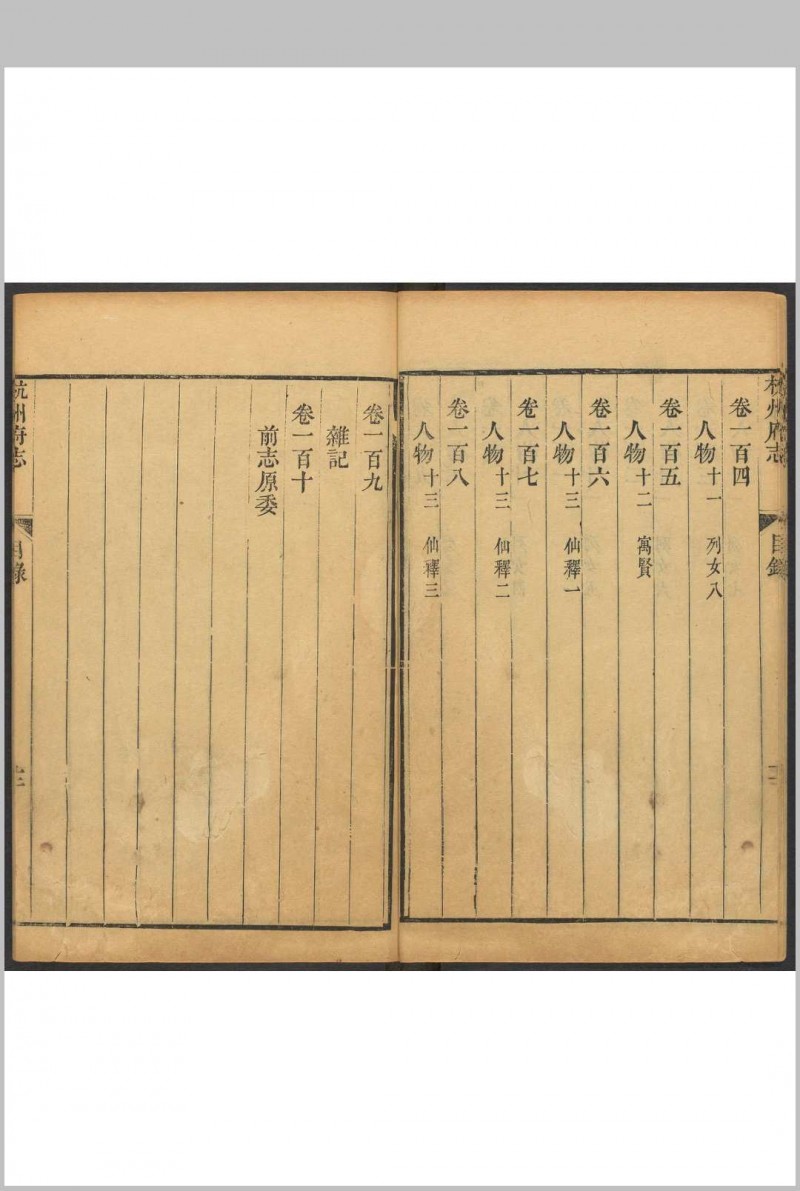 杭州府志 目錄
卷一百四
人物十一 列女八
卷一百五
人物十二 寓賢
卷一百六
人物十三 仙釋一
卷一百七
人物十三 仙釋二
卷一百八
人物十三 仙釋三
卷一百九
雜記
卷一百十
前志原委
杭州府志 目錄